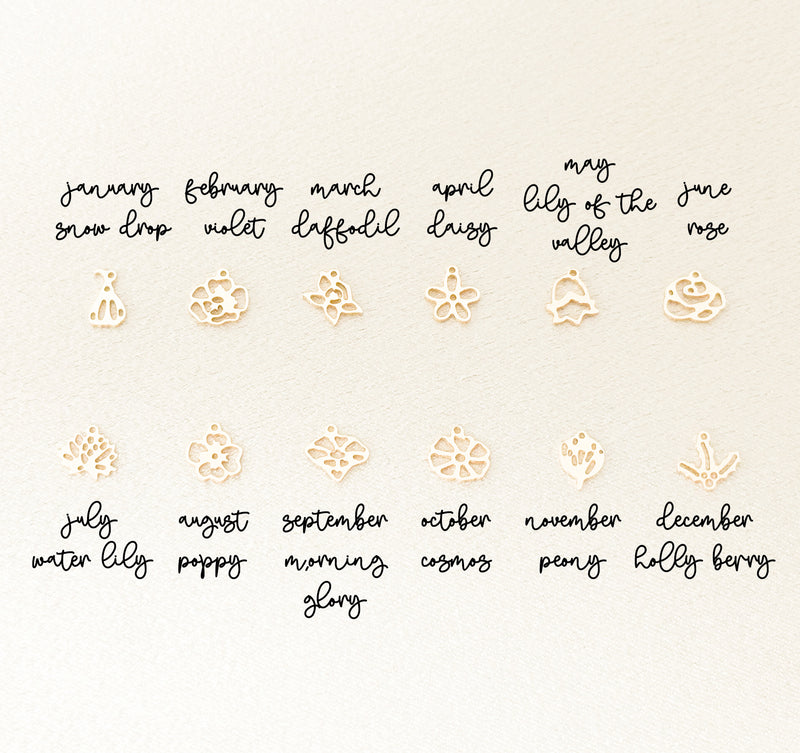 january
snow drop
february
violet
march
daffodil
april
daisy
may
lily of the
valley
june
rose
july
water lily
august
poppy
september
m,orning
glory
october
cosmos
november
peony
december
holly berry